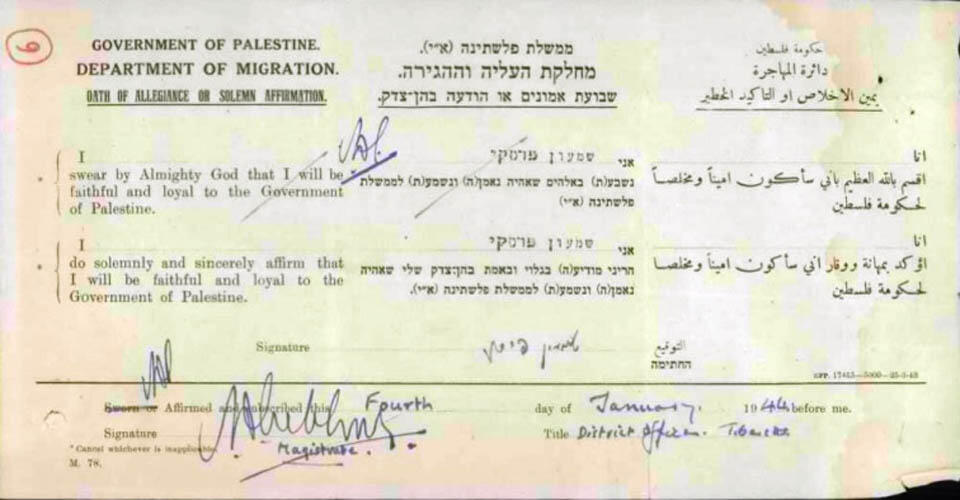 6
GOVERNMENT OF PALESTINE.
DEPARTMENT OF MIGRATION.
OATH OF ALLEGIANCE OR SOLEMN AFFIRMATION.
I
swear by Almighty God that I will be
faithful and loyal to the Government
of Palestine.
I
do solemnly and sincerely affirm that
I will be faithful and loyal to the
Government of Palestine.
ממשלת פלשתינה (א״י).
מחלקת העליה וההגירה.
שבועת אמונים או הודעה בהן־צדק.
אני שמעון
נשבע(ת) באלהים שאהיה נאמן(ה) ונשמע(ת) לממשלת
פלשתינה (א״י)
אני שמעון
הריני מודיע(ה) בגלוי ובאמת בהן־צדק שלי שאהיה
נאמן(ה) ונשמע(ת) לממשלת פלשתינה (א״י).
حكومة فلسطين
دائرة المهاجرة
يمين الاخلاص او التاكيد الخطير
انا
اقسم بالله العظيم باني سأكون اميناً ومخلصاً
لحكومة فلسطين
انا
اؤكد بمهانة ووقار اني سأكون اميناً ومخلصاً
لحكومة فلسطين
Signature שמעון التوقيع
החתימה
GPP. 17415—5000—25-3-43
Sworn or Affirmed and subscribed this Fourth day of January. 1944 before me.
Signature Title District Officer. Tiberias
Magistrate.
* Cancel whichever is inapplicable.
M. 78.